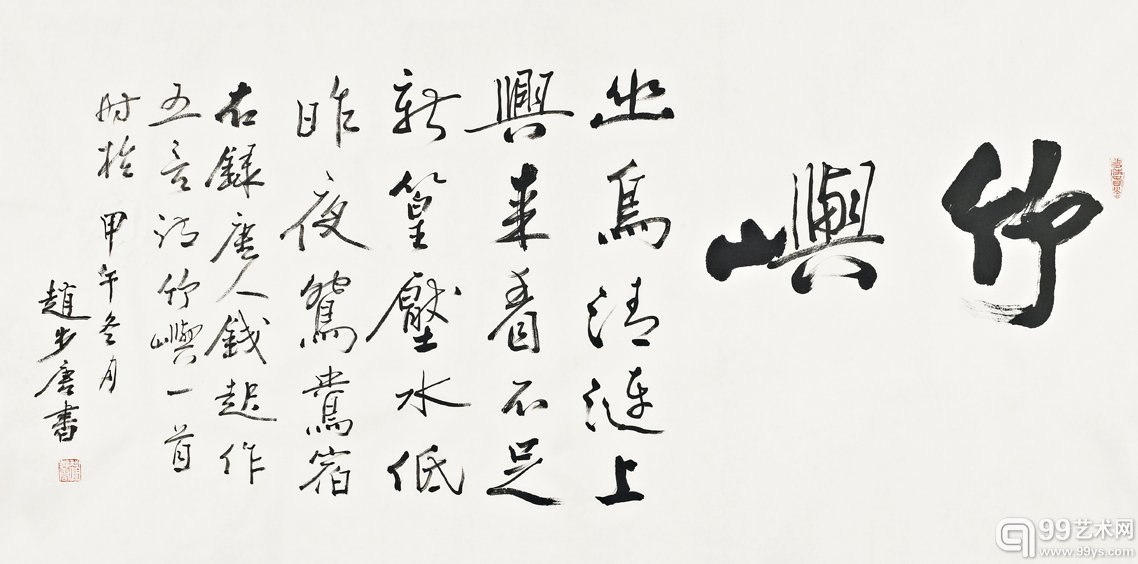 竹嶼
幽鳥清漣上
興來看不足
新篁壓水低
昨夜鴛鴦宿
右録唐人錢起作
五言詩竹嶼一首
时於甲午冬月
趙步唐書
99艺术网
www.99ys.com